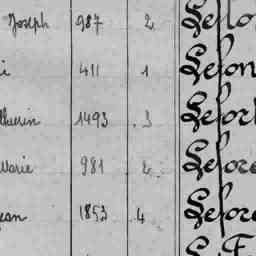 Joseph 987 2 Lelo
i 411 1 Lelon
thurin 1493 3 Lelor
Marie 981 2 Lelore
Jean 1853 4 Lelore